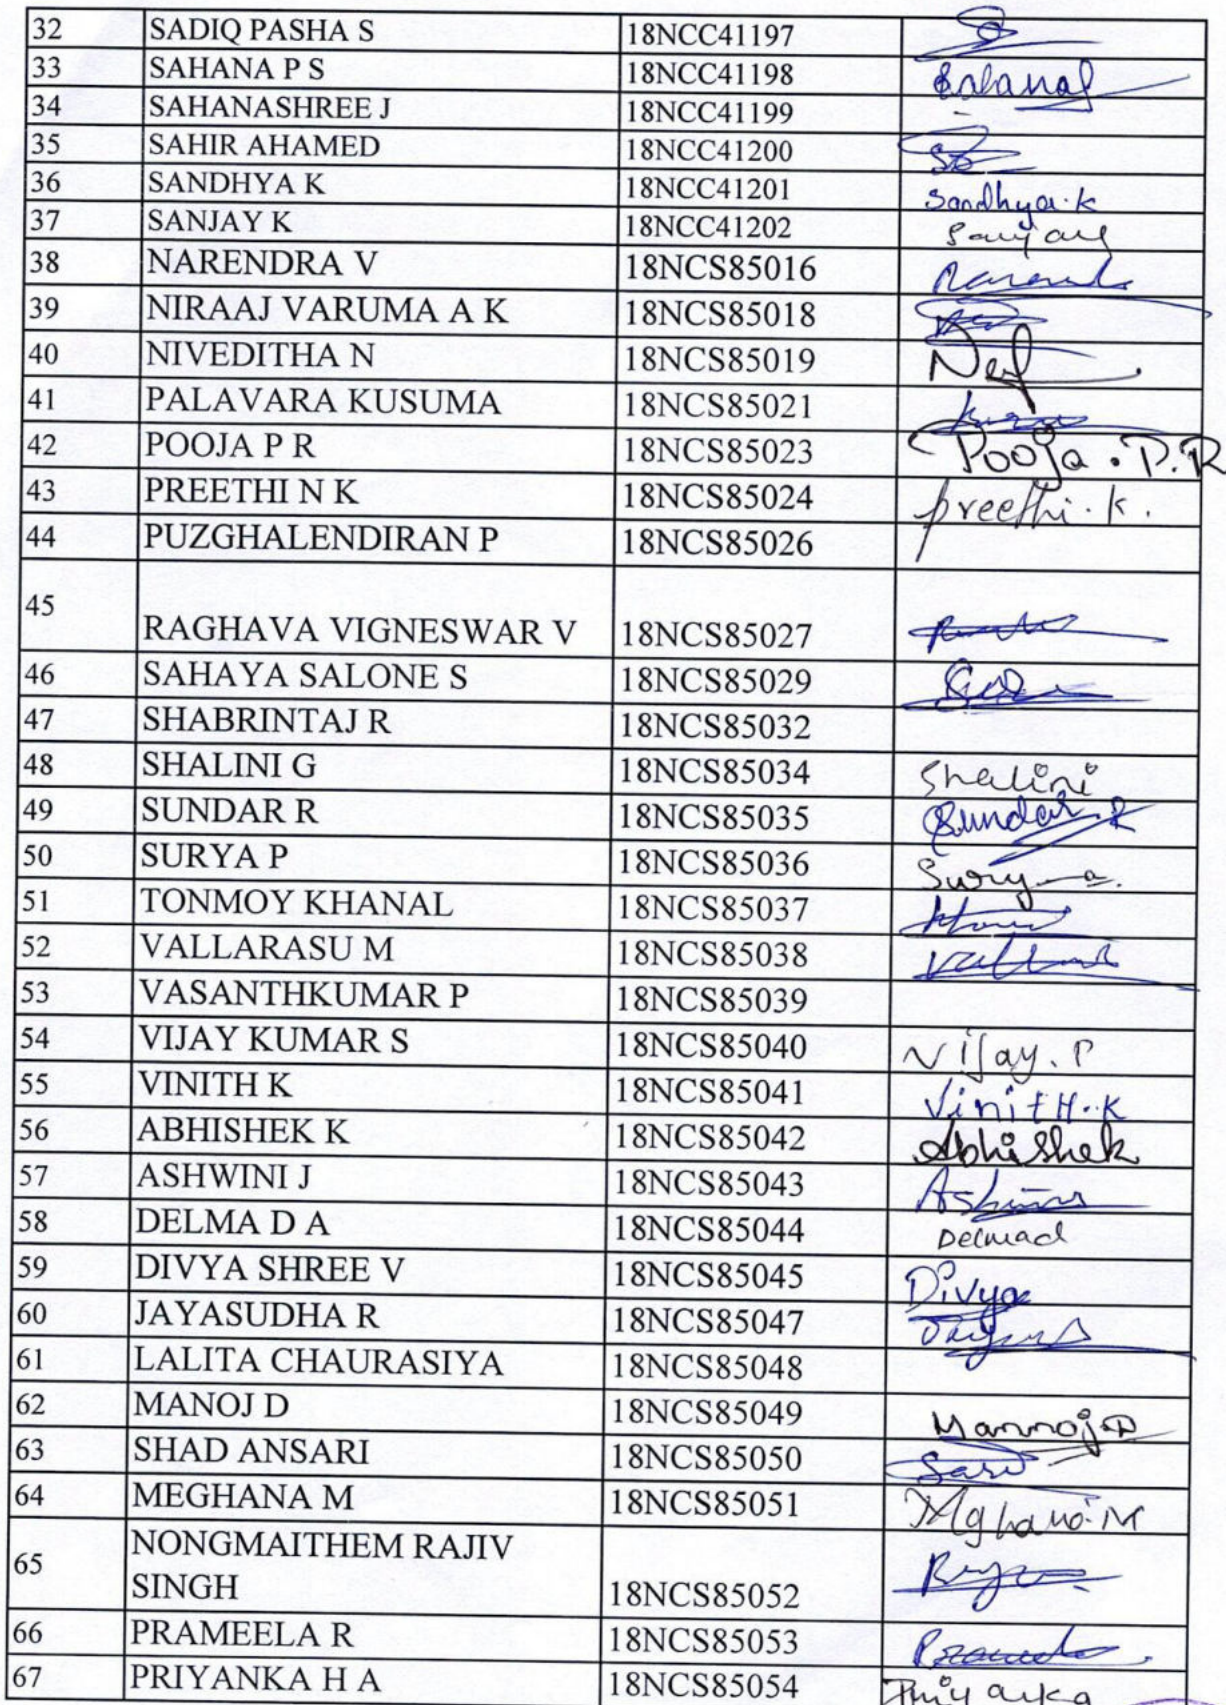 32 SADIQ PASHA S 18NCC41197
33 SAHANA P S 18NCC41198
34 SAHANASHREE J 18NCC41199
35 SAHIR AHAMED 18NCC41200
36 SANDHYA K 18NCC41201 Sandhya.K
37 SANJAY K 18NCC41202 Sanjay
38 NARENDRA V 18NCS85016
39 NIRAAJ VARUMA A K 18NCS85018
40 NIVEDITHA N 18NCS85019
41 PALAVARA KUSUMA 18NCS85021
42 POOJA P R 18NCS85023 Pooja.P.R
43 PREETHI N K 18NCS85024 preethi.k.
44 PUZGHALENDIRAN P 18NCS85026
45 RAGHAVA VIGNESWAR V 18NCS85027
46 SAHAYA SALONE S 18NCS85029
47 SHABRINTAJ R 18NCS85032
48 SHALINI G 18NCS85034 Shalini
49 SUNDAR R 18NCS85035 Sundar.R
50 SURYA P 18NCS85036 Surya.
51 TONMOY KHANAL 18NCS85037
52 VALLARASU M 18NCS85038
53 VASANTHKUMAR P 18NCS85039
54 VIJAY KUMAR S 18NCS85040 Vijay.P
55 VINITH K 18NCS85041 VinitH.K
56 ABHISHEK K 18NCS85042 Abhishek
57 ASHWINI J 18NCS85043
58 DELMA D A 18NCS85044
59 DIVYA SHREE V 18NCS85045 Divya
60 JAYASUDHA R 18NCS85047
61 LALITA CHAURASIYA 18NCS85048
62 MANOJ D 18NCS85049
63 SHAD ANSARI 18NCS85050
64 MEGHANA M 18NCS85051
65 NONGMAITHEM RAJIV
SINGH 18NCS85052
66 PRAMEELA R 18NCS85053
67 PRIYANKA H A 18NCS85054 Priyanka